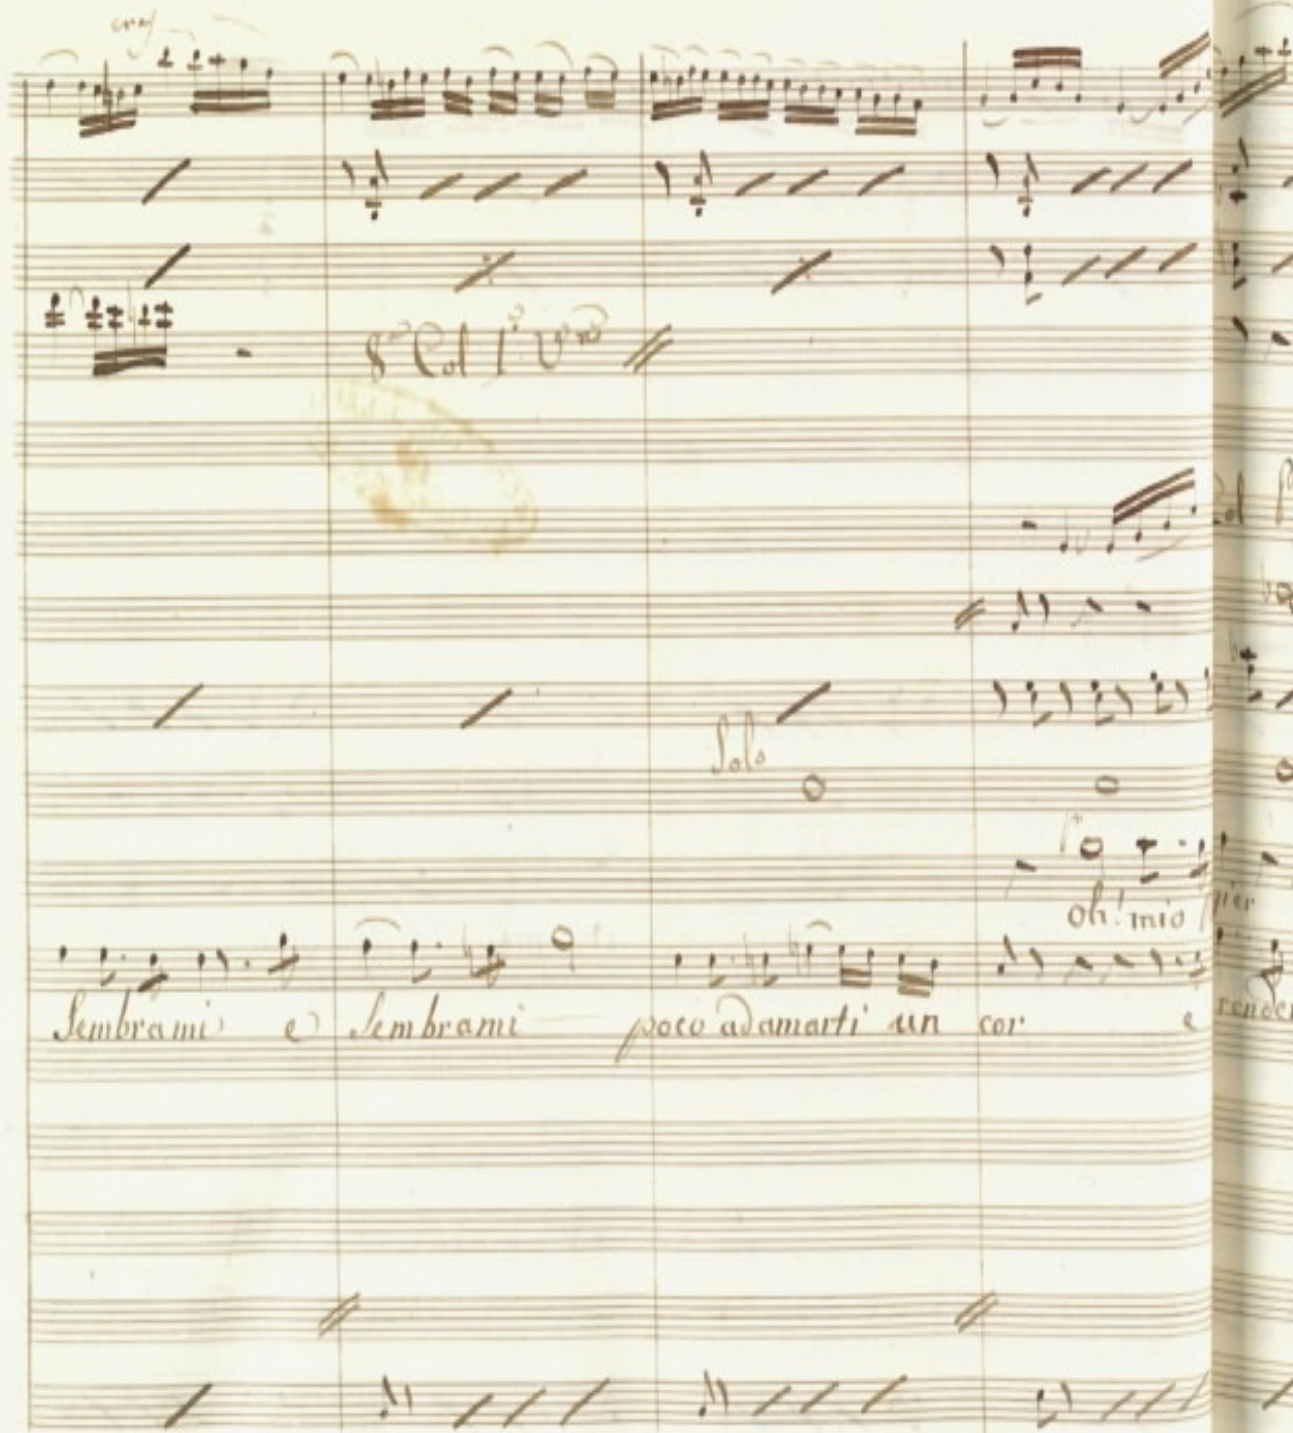 cres
8va Col 1º Vno
Solo
oh! mio
Sembrami e Sembrami poco ad amarti un cor e render